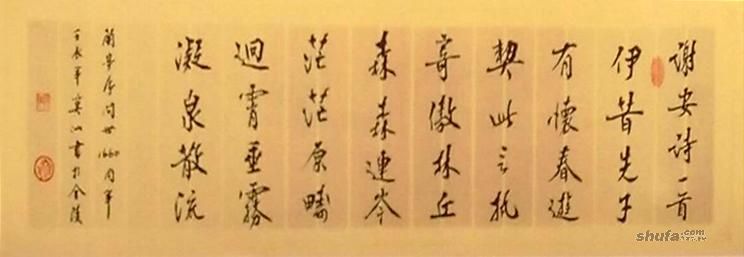 謝安詩一首
伊昔先子
有懷春遊
契此言執
寄傲林丘
森森連岑
茫茫原疇
迴霄垂霧
凝泉散流
蘭亭序問世1660周年
壬辰年 書於金陵
shufa.com